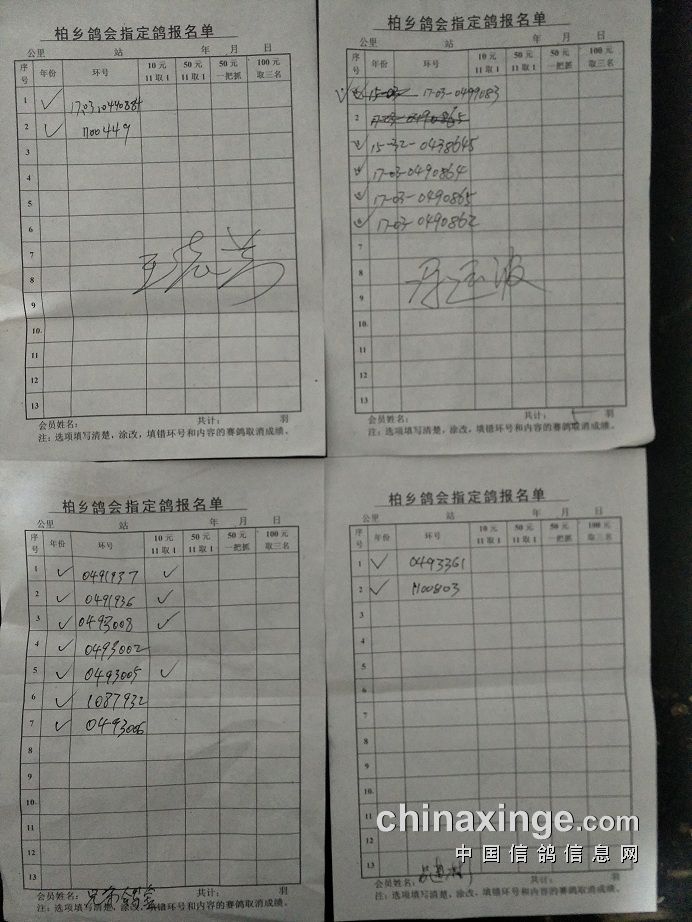 柏乡鸽会指定鸽报名单
公里 站 年 月 日
序号 年份 环号 10元 11取1 50元 11取1 50元 一把抓 100元 取三名
1 ✓
2 ✓ 1100449
3
4
5
6
7
8
9
10.
11
12
13
会员姓名： 共计： 羽
注：选项填写清楚，涂改，填错环号和内容的赛鸽取消成绩。
柏乡鸽会指定鸽报名单
公里 站 年 月 日
序号 年份 环号 10元 11取1 50元 11取1 50元 一把抓 100元 取三名
✓ 17-03-0499083
2 17-03-0490865
✓ 15-32-0438645
✓ 17-03-0490864
✓ 17-03-0490865
✓ 17-03-0490862
7
8
9
10.
11
12
13
会员姓名： 共计： 羽
注：选项填写清楚，涂改，填错环号和内容的赛鸽取消成绩。
柏乡鸽会指定鸽报名单
公里 站 年 月 日
序号 年份 环号 10元 11取1 50元 11取1 50元 一把抓 100元 取三名
1 ✓ 0491937 ✓
2 ✓ 0491936 ✓
3 ✓ 0493008 ✓
4 ✓ 0493002
5 ✓ 0493005 ✓
6 ✓ 1087932
7 ✓ 0493006
8
9
10.
11
12
13
会员姓名：兄弟鸽舍 共计： 羽
注：选项填写清楚，涂改，填错环号和内容的赛鸽取消成绩。
柏乡鸽会指定鸽报名单
公里 站 年 月 日
序号 年份 环号 10元 11取1 50元 11取1 50元 一把抓 100元 取三名
1 ✓ 0493361
2 ✓ 1100803
3
4
5
6
7
8
9
10.
11
12
13
会员姓名： 共计： 羽
注：选项填写清楚，涂改，填错环号和内容的赛鸽取消成绩。
chinaxinge.com
中国信鸽信息网